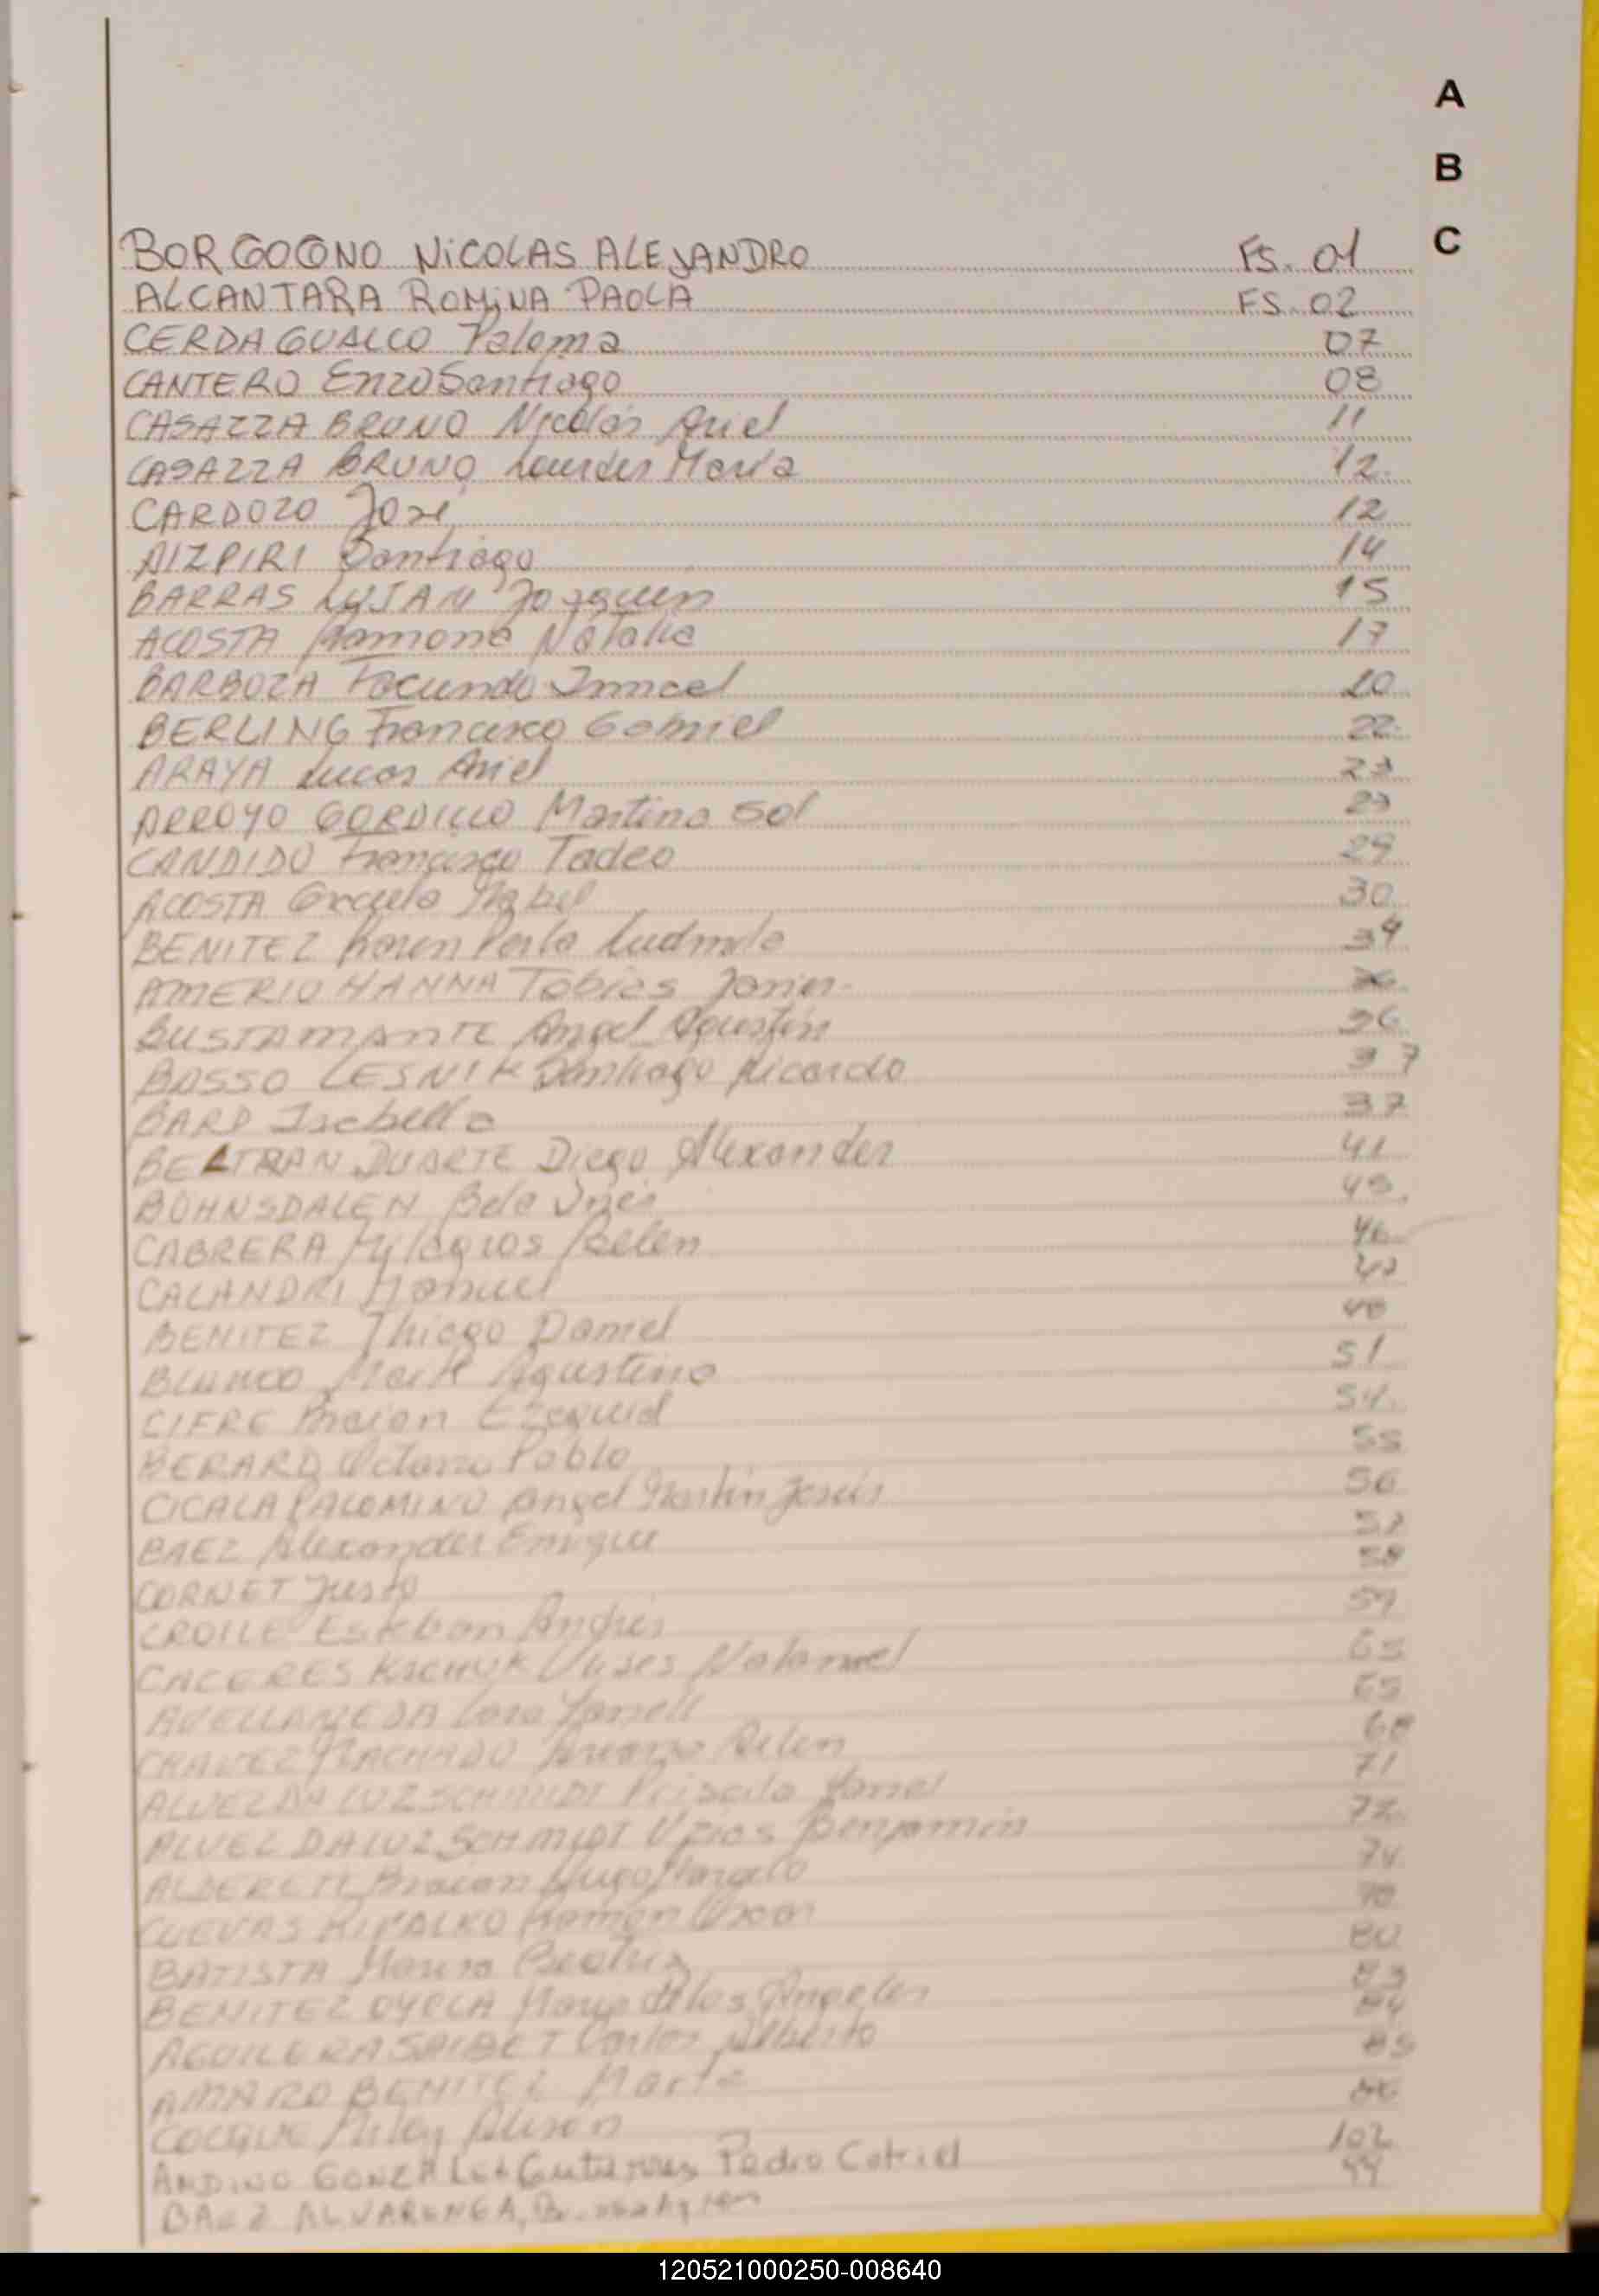 A
B
C
BORGOGNO NiCOLAS ALEJANDRO FS. 01
ALCANTARA ROMiNA PAOLA FS. 02
CERDA GUALCO Paloma 07
CANTERO Enzo Santiago 08
CASAZZA BRUNO Nicolás Ariel 11
CASAZZA BRUNO Lourdes María 12
CARDOZO José 12
AIZPIRI Santiago 14
BARRAS LUJAN Joaquín 15
ACOSTA Ramona Natalia 17
BARBOZA Facundo 20
BERLING Francisco Gabriel 22
ARAYA Lucas Ariel
ARROYO GORDILLO Martina Sol
CANDIDO Francisco Tadeo 29
ACOSTA Graciela Mabel 30
BENITEZ Karen Perla Ludmila 34
AMERIO HANNA Tobias Javier
BUSTAMANTE Angel Agustín 36
BASSO LESNIK Santiago Ricardo 37
BARD Isabella 37
BELTRAN DUARTE Diego Alexander 41
BOHNSDALEN Bela Inés 45
CABRERA Milagros Belen 46
CALANDRI Manuel
BENITEZ Thiago Daniel 48
BLANCO Agustina 51
CIFRE Braian Ezequiel 54
BERARD Octavio Pablo 55
CICALA PALOMINO Angel Martín Jesús 56
BAEZ Alexander Enrique 57
CORNET Justo 58
CROLLE Esteban Andrés 59
CACERES Ulises Natanael 65
AVELLANEDA Lara 65
CHAVEZ MACHADO Belen 68
ALVEZ DA LUZ SCHMIDT Priscila 71
ALVEZ DA LUZ SCHMIDT Benjamín 72
ALDERETE Braian Hugo Marcelo 74
CUEVAS Ramón Oscar
BATISTA Beatriz 80
BENITEZ María de los Angeles 83
AGUILERA Carlos Alberto 84
AMARO BENITEZ Marta 85
Alison 86
ANDINO GONZALEZ Gutierrez Pedro Catriel 102
BAEZ ALVARENGA, 99
120521000250-008640